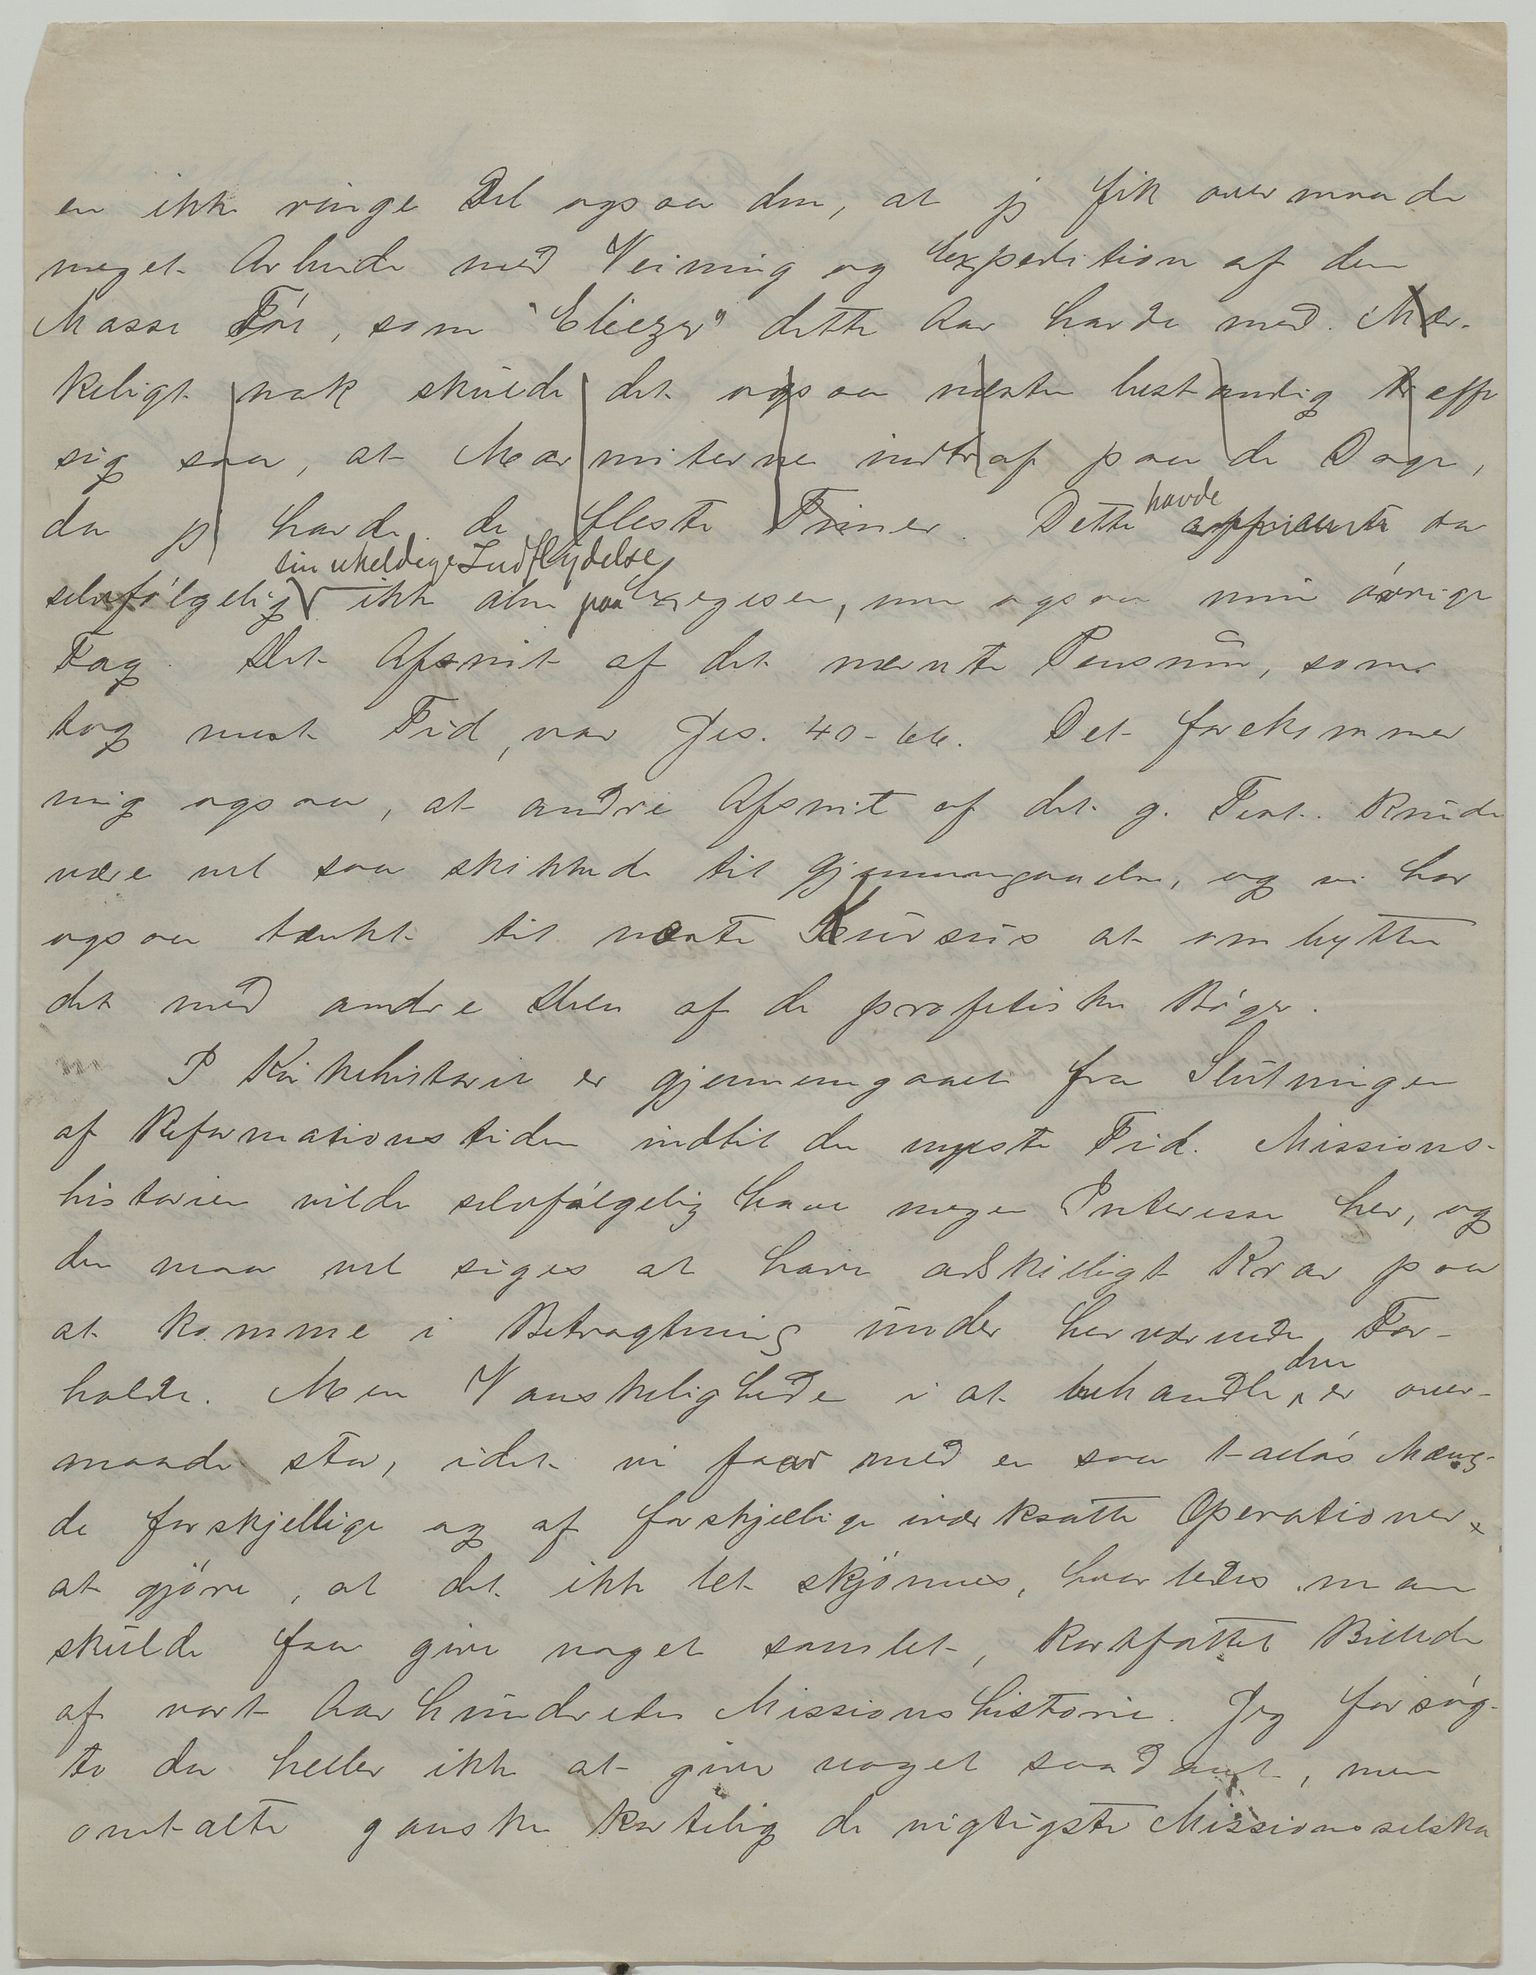 en ikke ringe Del ogsaa den, at jeg fik overmaade
meget Arbeide med Veining og Expedition af den
Masse Töi, som "Eliezer" dette Aar havde med. Mær-
keligt nok skulde det ogsaa næsten bestandig træffe
sig saa, at Marmiterne indtraf paa de Dage,
da jeg havde de fleste Timer. Dette havde afficerte da
selvfölgelig sin uheldige Indflydelse ikke alene paa Exegesen, men ogsaa mine övrige
Fag. Det Afsnit af det nævnte Pensum, som
tog mest Tid, var Jes. 40-66. Det forekommer
mig ogsaa, at andre Afsnit af det g. Test. kunde
være vel saa skikkede til Gjennemgaaelse, og vi har
ogsaa tænkt til næste Kursus at ombytte
det med andre Dele af de profetiske Böger.
I Kirkehistorie er gjennemgaaet fra Slutningen
af Reformationstiden indtil den nyeste Tid. Missions-
historien vilde selvfölgelig have megen Interesse her, og
den maa vel siges at have adskilligt Krav paa
at komme i Betragtning under herværende For-
holde. Men Vanskeligheden i at behandle den er over-
maade stor, idet vi faar med en saa talös Mæng-
de forskjellige og af forskjellige iværksatte Operationer
at gjöre, at det ikke let skjönnes, hvorledes man
skulde faa give noget samlet, kortfattet Billede
af vort Aarhundredes Missionshistorie. Jeg forsög-
te da heller ikke at give noget saadant, men
omtalte ganske kortelig de vigtigste Missionsselska